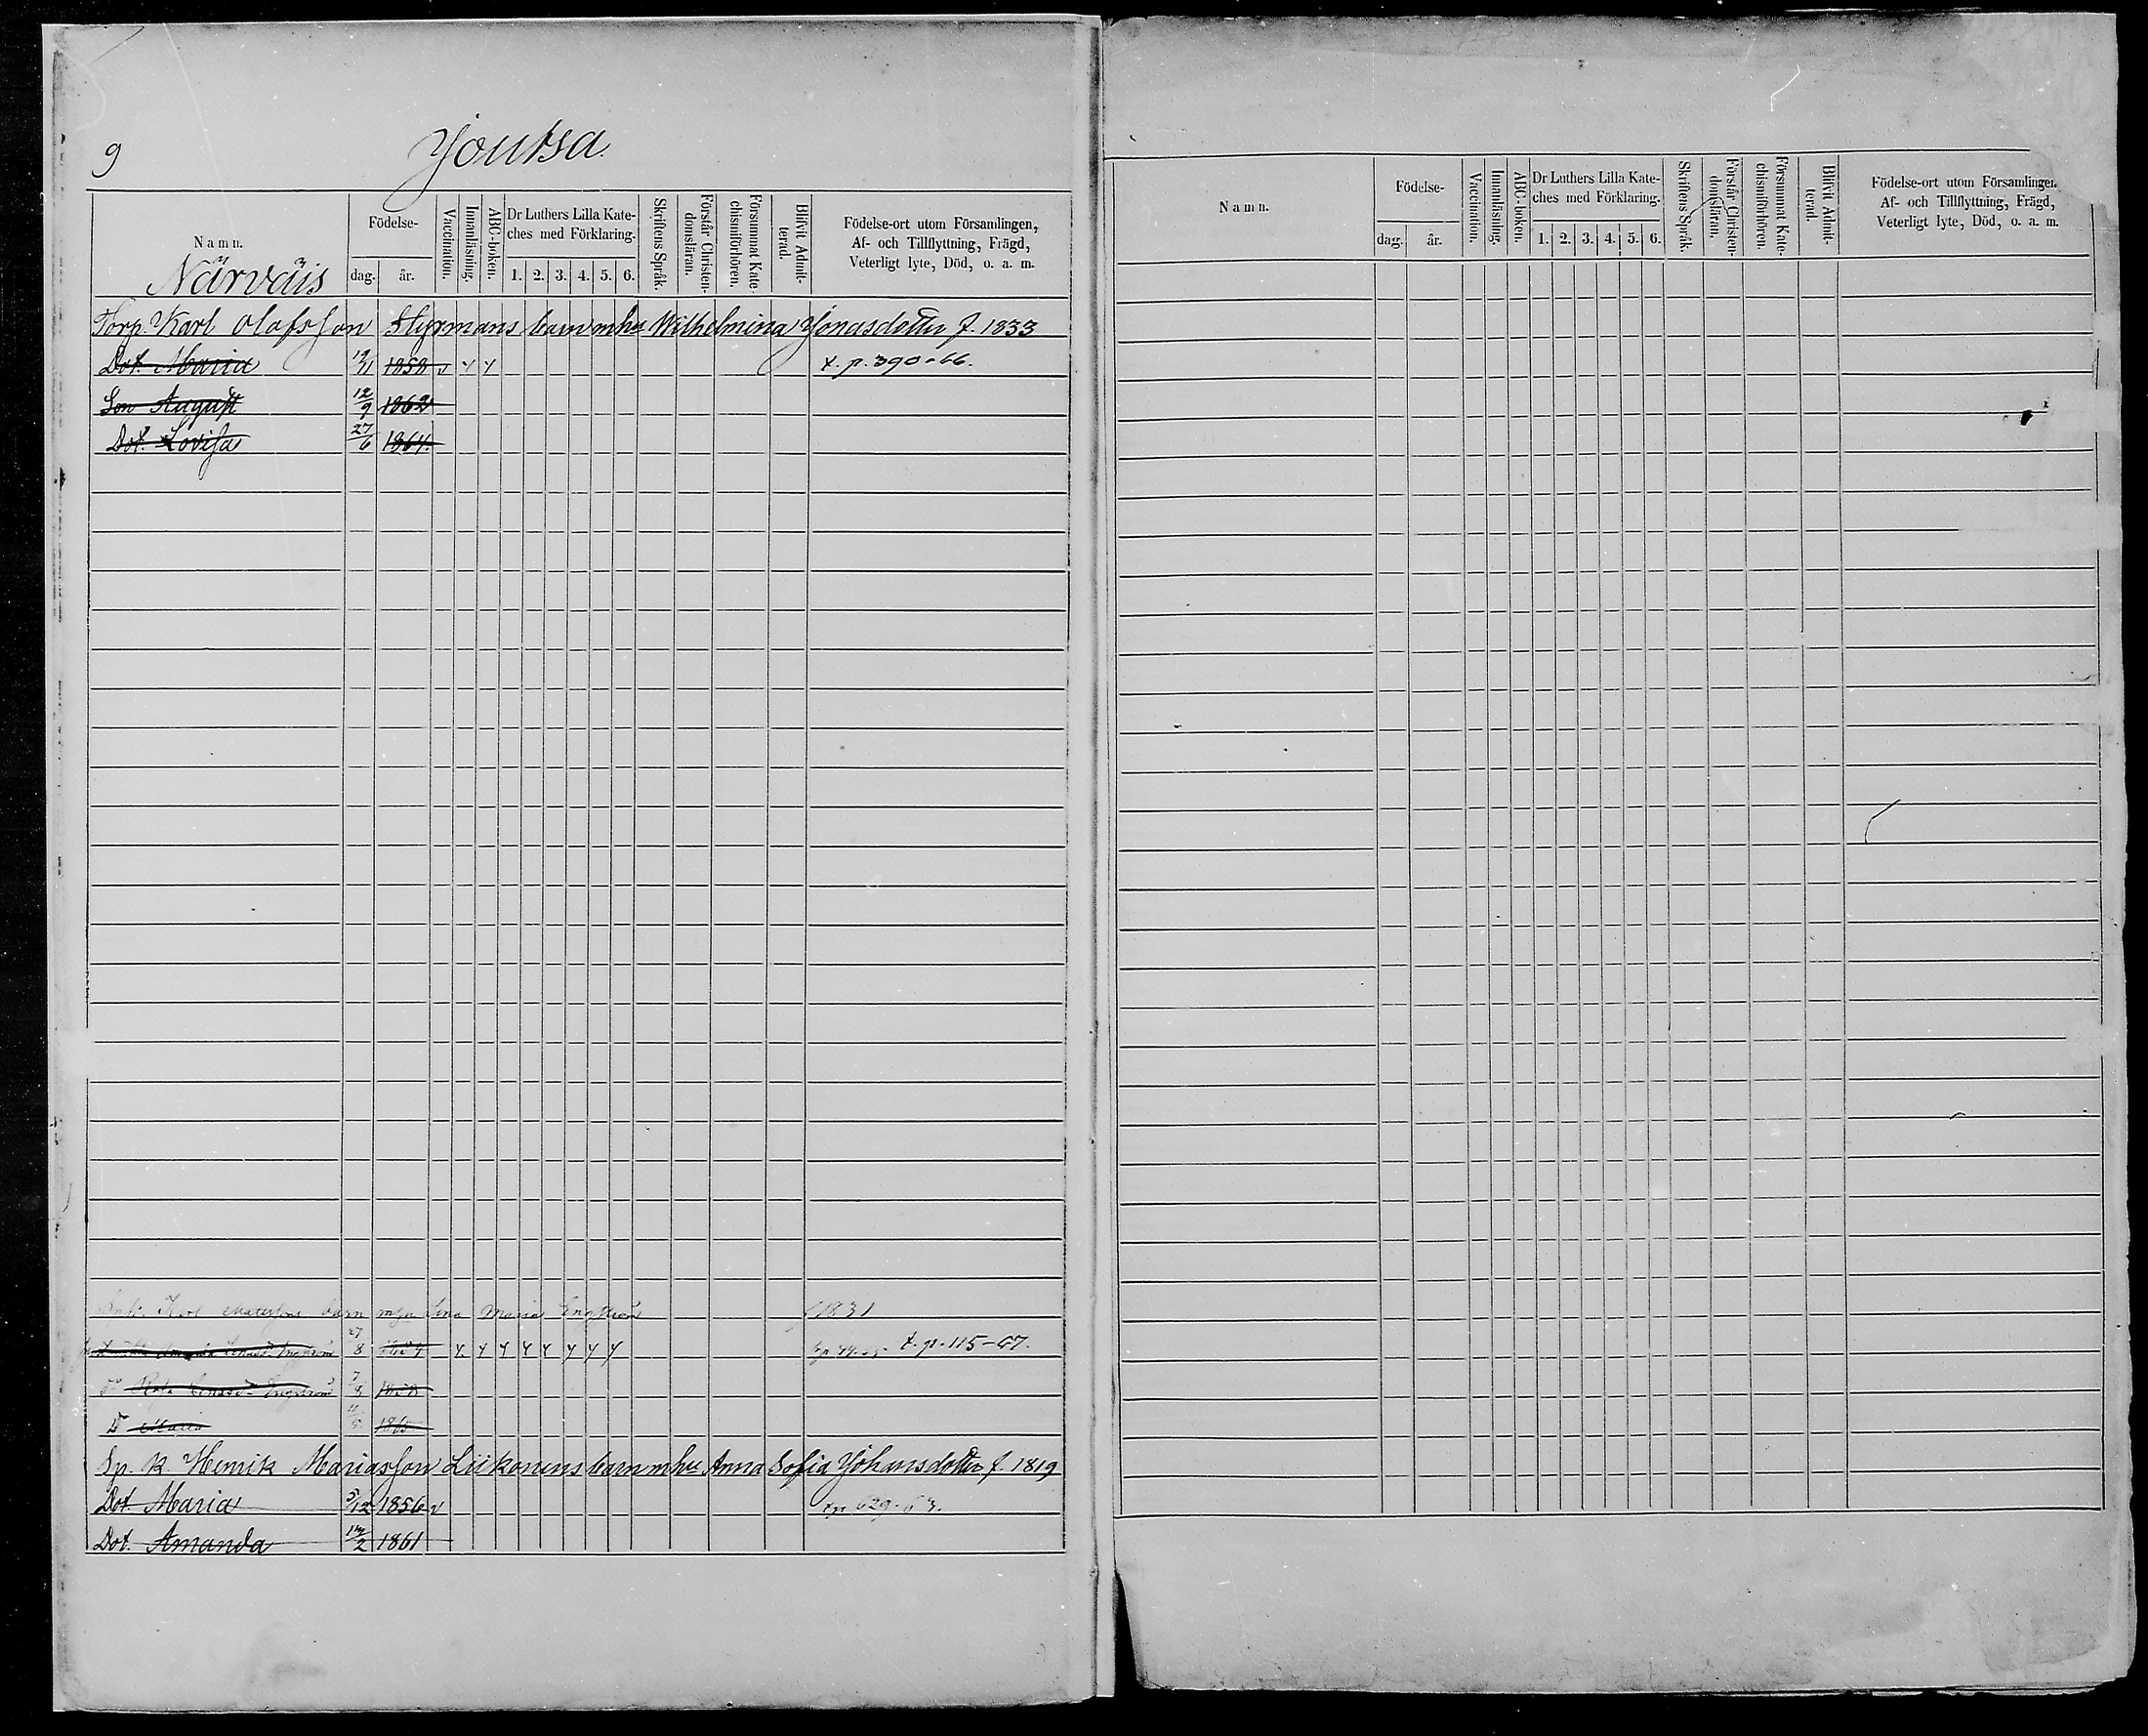 9 Joutsa
Namn. Födelse- dag. år. Vaccination. Innanläsning. ABC-boken. Dr Luthers Lilla Kateches med Förklaring. 1. 2. 3. 4. 5. 6. Skriftens Språk. Förstår Christendomsläran. Försummat Katechismiförhören. Blifvit Admitterad. Födelse-ort utom Församlingen, Af- och Tillflyttning, Frägd, Veterligt lyte, Död, o. a. m.
Närväis
Torp. Karl Olofsson Styrmans barn mhu Wilhelmina Jonasdotter f. 1833
Dot. Maria 19/11 1858 v y y t. p. 390-66.
Son August 12/9 1862
Dot. Lovisa 27/6 1864.
Karl barn Lena Maria Engström 1831
27/8 y y y y y y y y t. p. 115-67.
Engström 7/8 1858
D Maria 1865
Sp. k. Henrik Mariasson Liikonens barn mhu Anna Sofia Johansdotter f. 1819
Dot. Maria 5/12 1856 v tp 629-63.
Dot. Amanda 1861
Namn. Födelse- dag. år. Vaccination. Innanläsning. ABC-boken. Dr Luthers Lilla Kateches med Förklaring. 1. 2. 3. 4. 5. 6. Skriftens Språk. Förstår Christendomsläran. Försummat Katechismiförhören. Blifvit Admitterad. Födelse-ort utom Församlingen, Af- och Tillflyttning, Frägd, Veterligt lyte, Död, o. a. m.